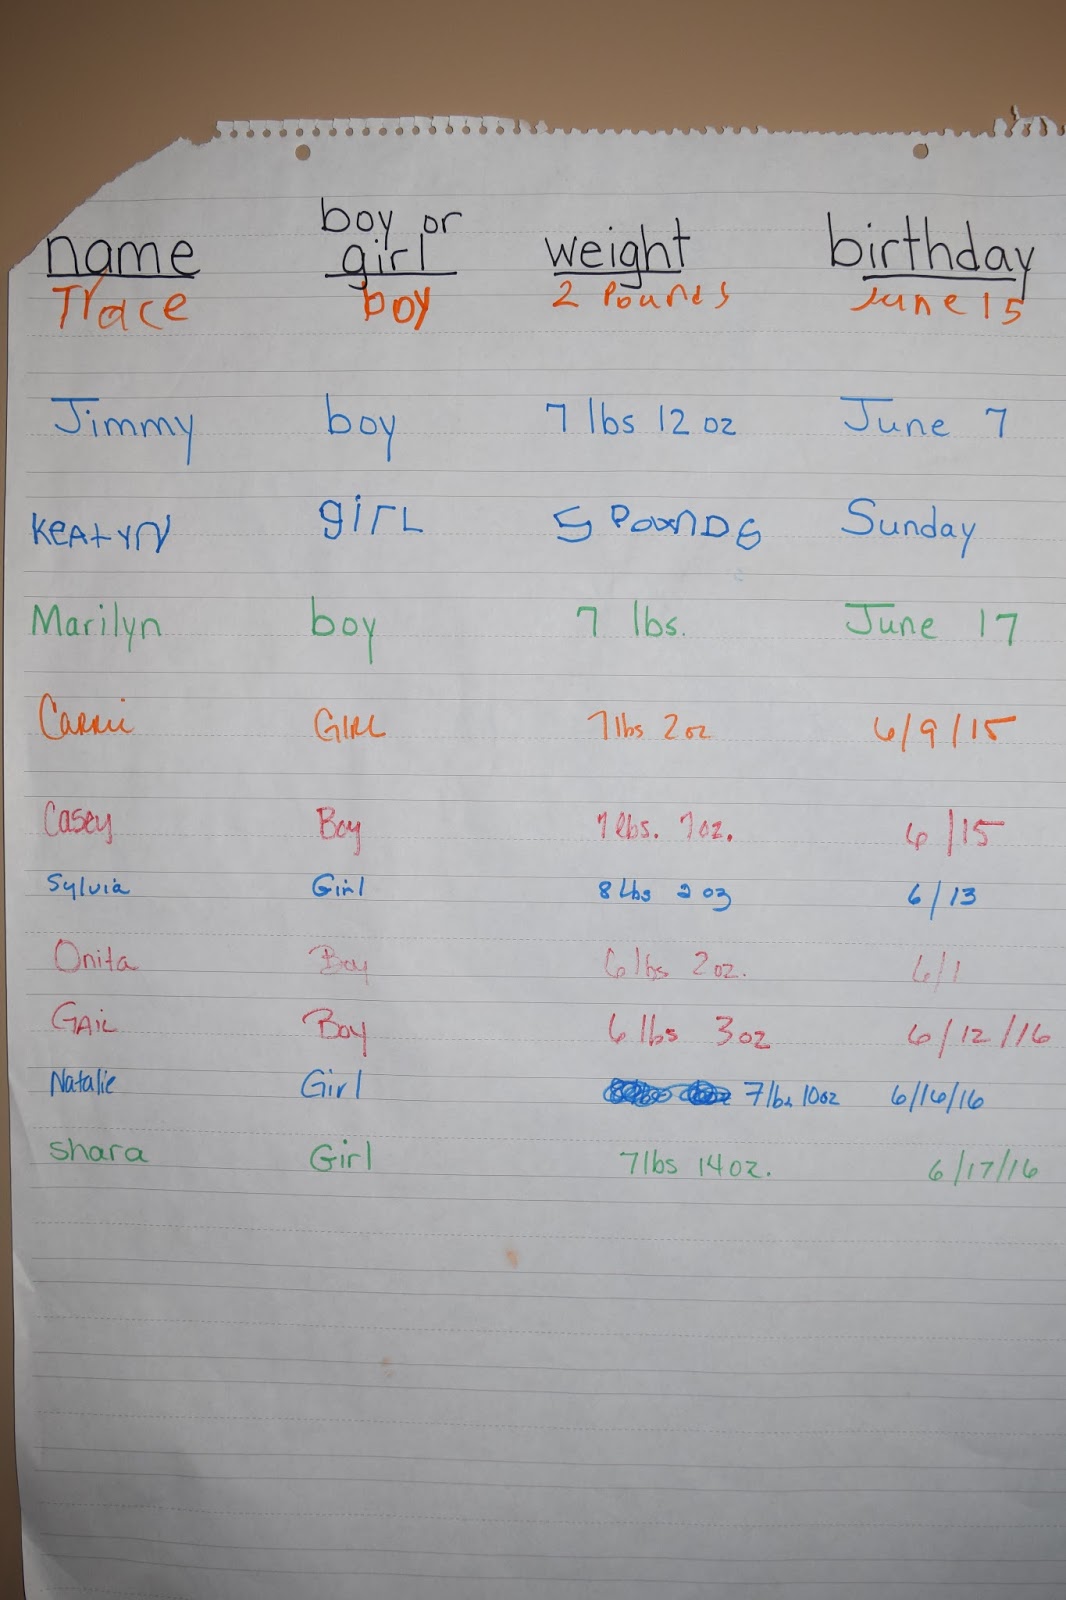 name boy or girl weight birthday
Trace boy 2 Pounds June 15
Jimmy boy 7 lbs 12 oz June 7
KeAtyN girL 5 PouNDS Sunday
Marilyn boy 7 lbs. June 17
Carrie GIRL 7 lbs 2 oz 6/9/15
Casey Boy 7 lbs. 7 oz. 6/15
Sylvia Girl 8 Lbs 2 oz 6/13
Onita Boy 6 lbs 2 oz. 6/1
GAIL Boy 6 lbs 3 oz 6/12/16
Natalie Girl 7 lbs 10 oz 6/16/16
shara Girl 7 lbs 14 oz. 6/17/16